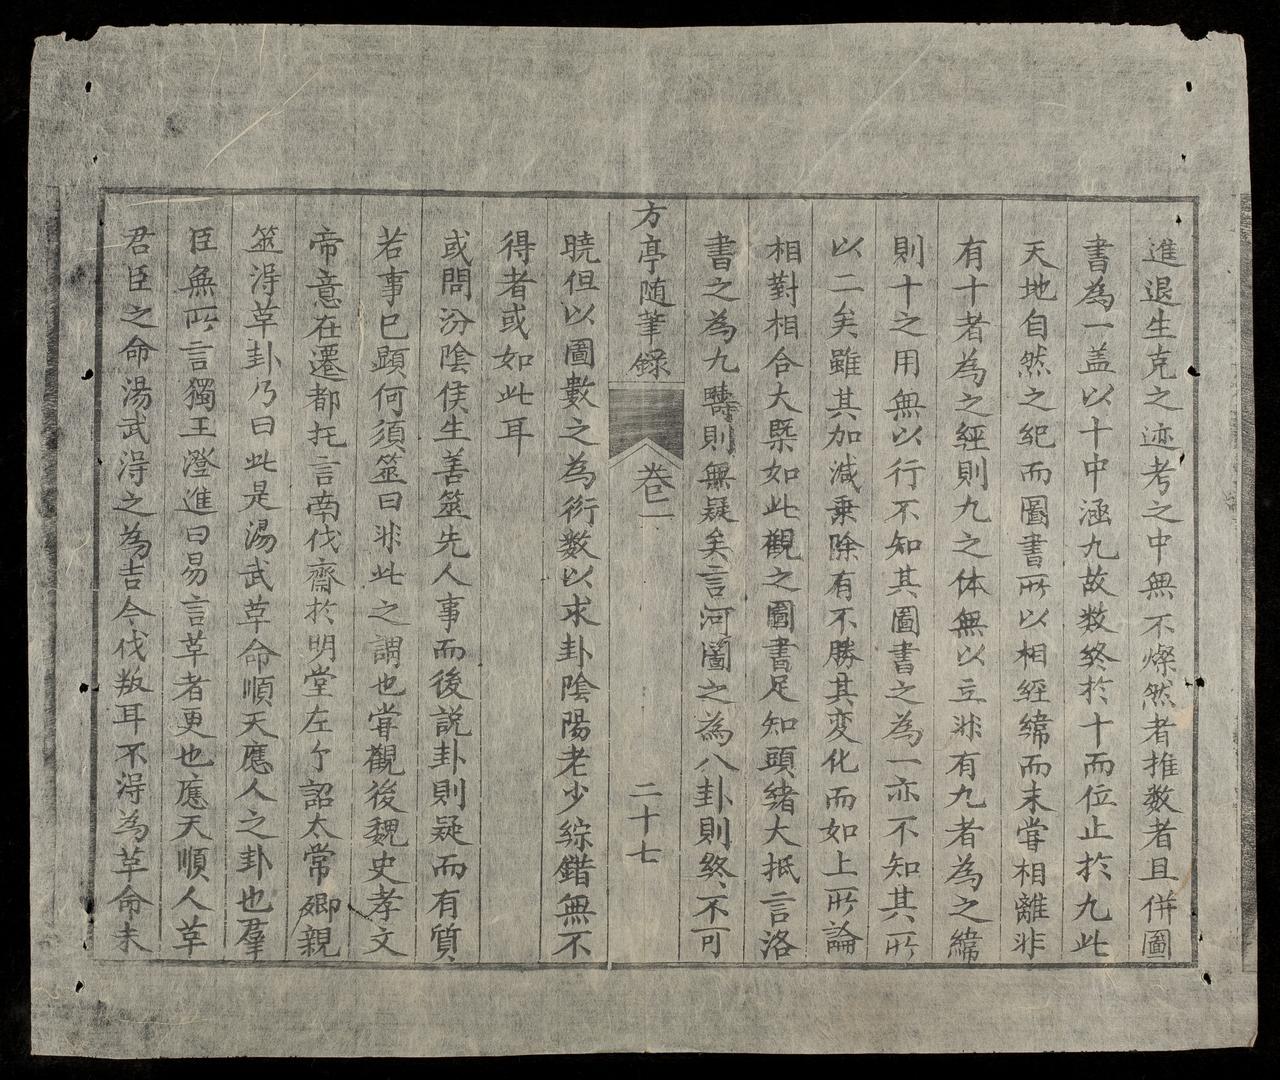 進退生克之迹考之中無不燦然者推数者且併圖
書為一盖以十中涵九故数終於十而位止於九此
天地自然之紀而圖書所以相經緯而未甞相離非
有十者為之經則九之体無以立非有九者為之緯
則十之用無以行不知其圖書之為一亦不知其所
以二矣雖其加減乗除有不勝其变化而如上所論
相對相合大槩如此觀之圖書足知頭緒大抵言洛
書之為九疇則無疑矣言河圖之為八卦則終不可
方亭随筆錄
卷二
二十七
曉但以圖數之為衍数以求卦陰陽老少綜錯無不
得者或如此耳
或問汾陰侯生善筮先人事而後説卦則疑而有質
若事已顕何須筮曰非此之謂也甞觀後魏史孝文
帝意在遷都托言南伐齋於明堂左亇詔太常卿親
筮淂革卦乃曰此是湯武革命順天應人之卦也羣
臣無所言獨王澄進曰易言革者更也應天順人革
君臣之命湯武淂之為吉今伐叛耳不淂為革命未